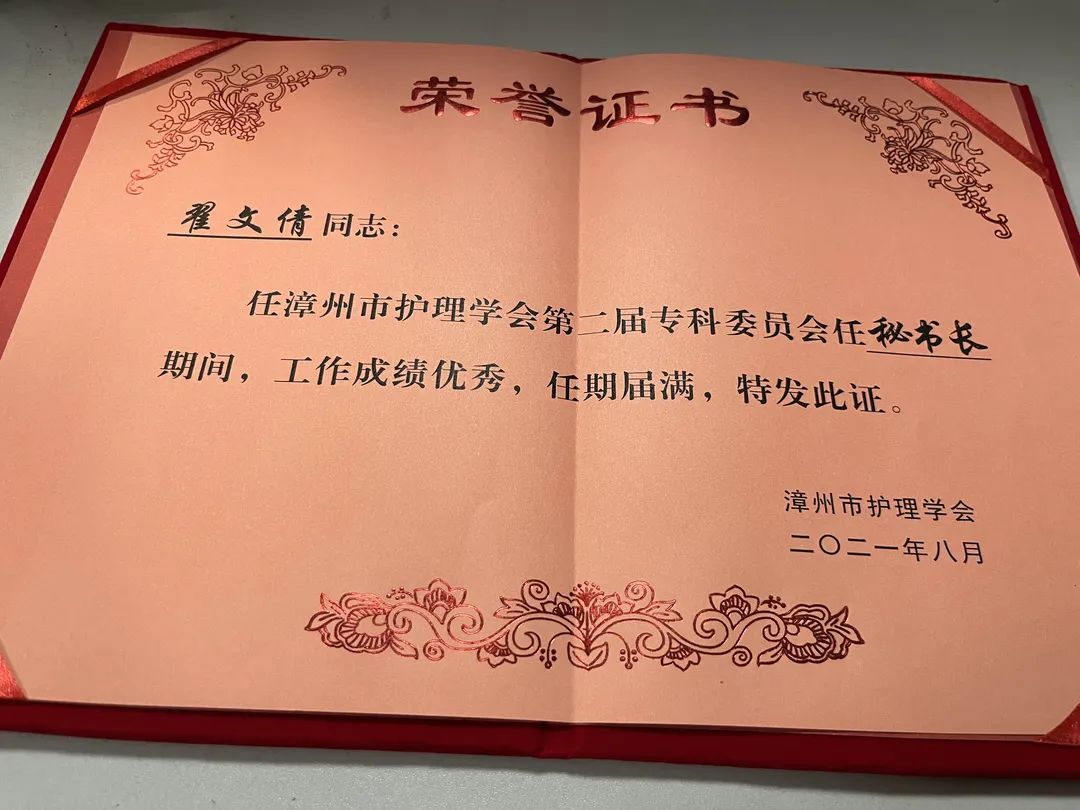 荣誉证书
翟文倩同志：
任漳州市护理学会第二届专科委员会任秘书长
期间，工作成绩优秀，任期届满，特发此证。
漳州市护理学会
二〇二一年八月